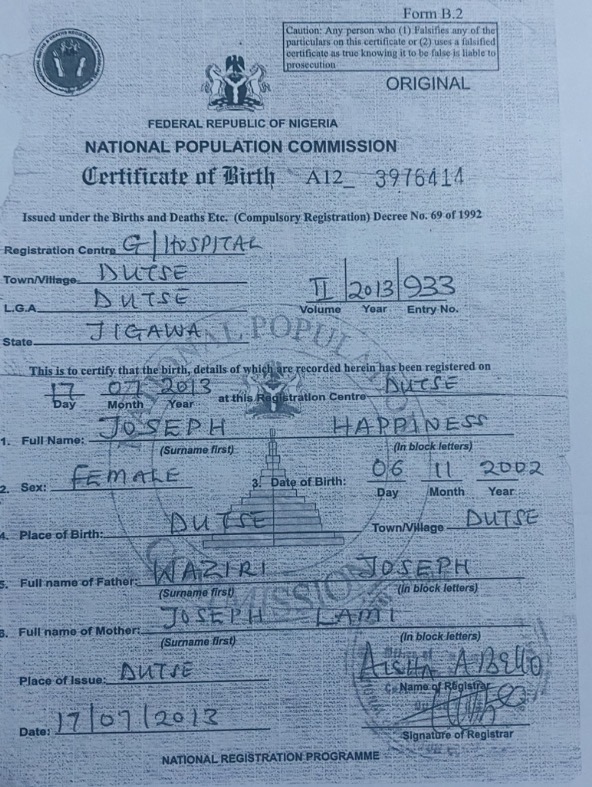 Form B.2
Caution: Any person who (1) Falsifies any of the
particulars on this certificate or (2) uses a falsified
certificate as true knowing it to be false is liable to
prosecution
ORIGINAL
FEDERAL REPUBLIC OF NIGERIA
NATIONAL POPULATION COMMISSION
Certificate of Birth A12_ 3976414
Issued under the Births and Deaths Etc. (Compulsory Registration) Decree No. 69 of 1992
Registration Centre G/HOSPITAL
Town/Village DUTSE
L.G.A DUTSE
II 2013 933
Volume Year Entry No.
State JIGAWA
This is to certify that the birth, details of which are recorded herein has been registered on
17 07 2013 at this Registration Centre DUTSE
Day Month Year
1. Full Name: JOSEPH HAPPINESS
(Surname first) (In block letters)
2. Sex: FEMALE 3. Date of Birth: 06 11 2002
Day Month Year
4. Place of Birth: DUTSE Town/Village DUTSE
5. Full name of Father: WAZIRI JOSEPH
(Surname first) (In block letters)
6. Full name of Mother: JOSEPH LAMI
(Surname first) (In block letters)
Place of Issue: DUTSE
AISHA A BELLO
Name of Registrar
Date: 17/07/2013
Signature of Registrar
NATIONAL REGISTRATION PROGRAMME